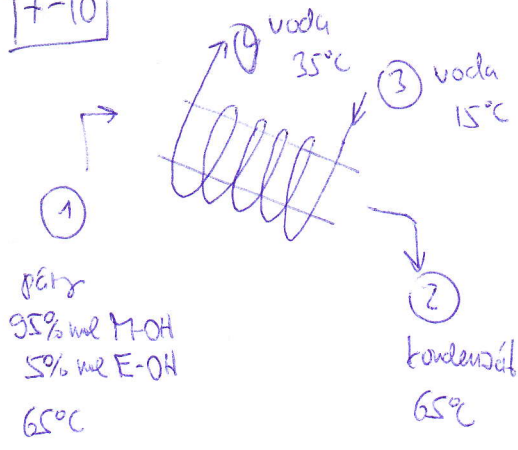 7-10
4 voda
35°C
3 voda
15°C
1
páry
95% mol M-OH
5% mol E-OH
65°C
2
kondenzát
65°C